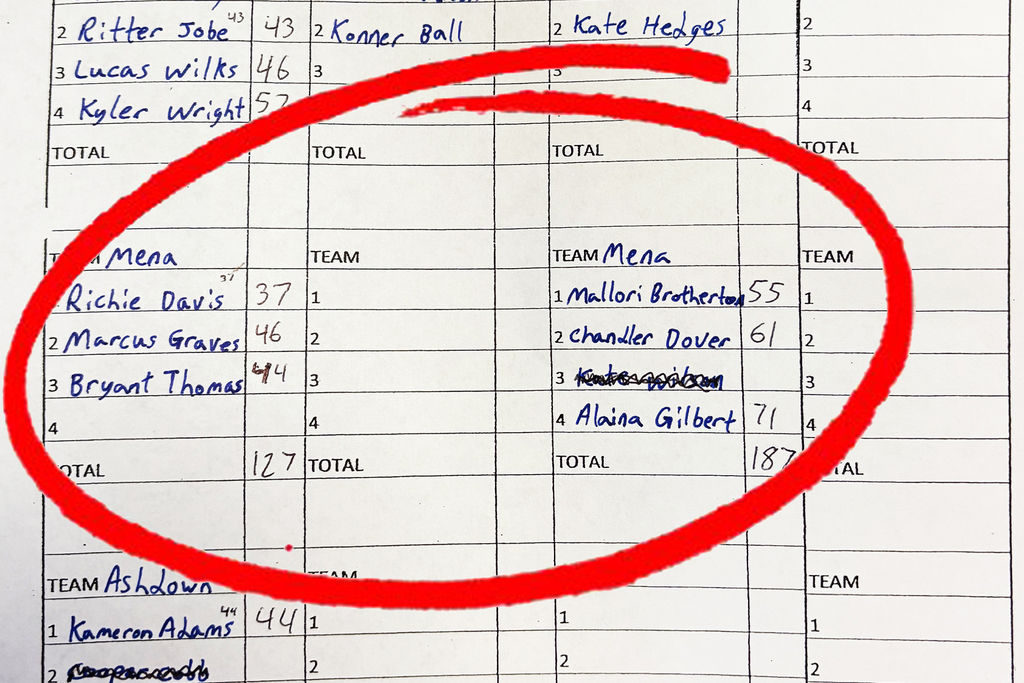 2 Ritter Jobe 43 43 2 Konner Ball 2 Kate Hedges 2
3 Lucas Wilks 46 3 3 3
4 Kyler Wright 4
TOTAL TOTAL TOTAL TOTAL
Mena TEAM TEAM Mena TEAM
Richie Davis 37 37 1 1 Mallori Brotherton 55 1
2 Marcus Graves 46 2 2 Chandler Dover 61 2
3 Bryant Thomas 44 3 3 3
4 4 4 Alaina Gilbert 71 4
TOTAL 127 TOTAL TOTAL 187 TOTAL
TEAM Ashdown TEAM TEAM
1 Kameron Adams 44 44 1 1 1
2 2 2 2